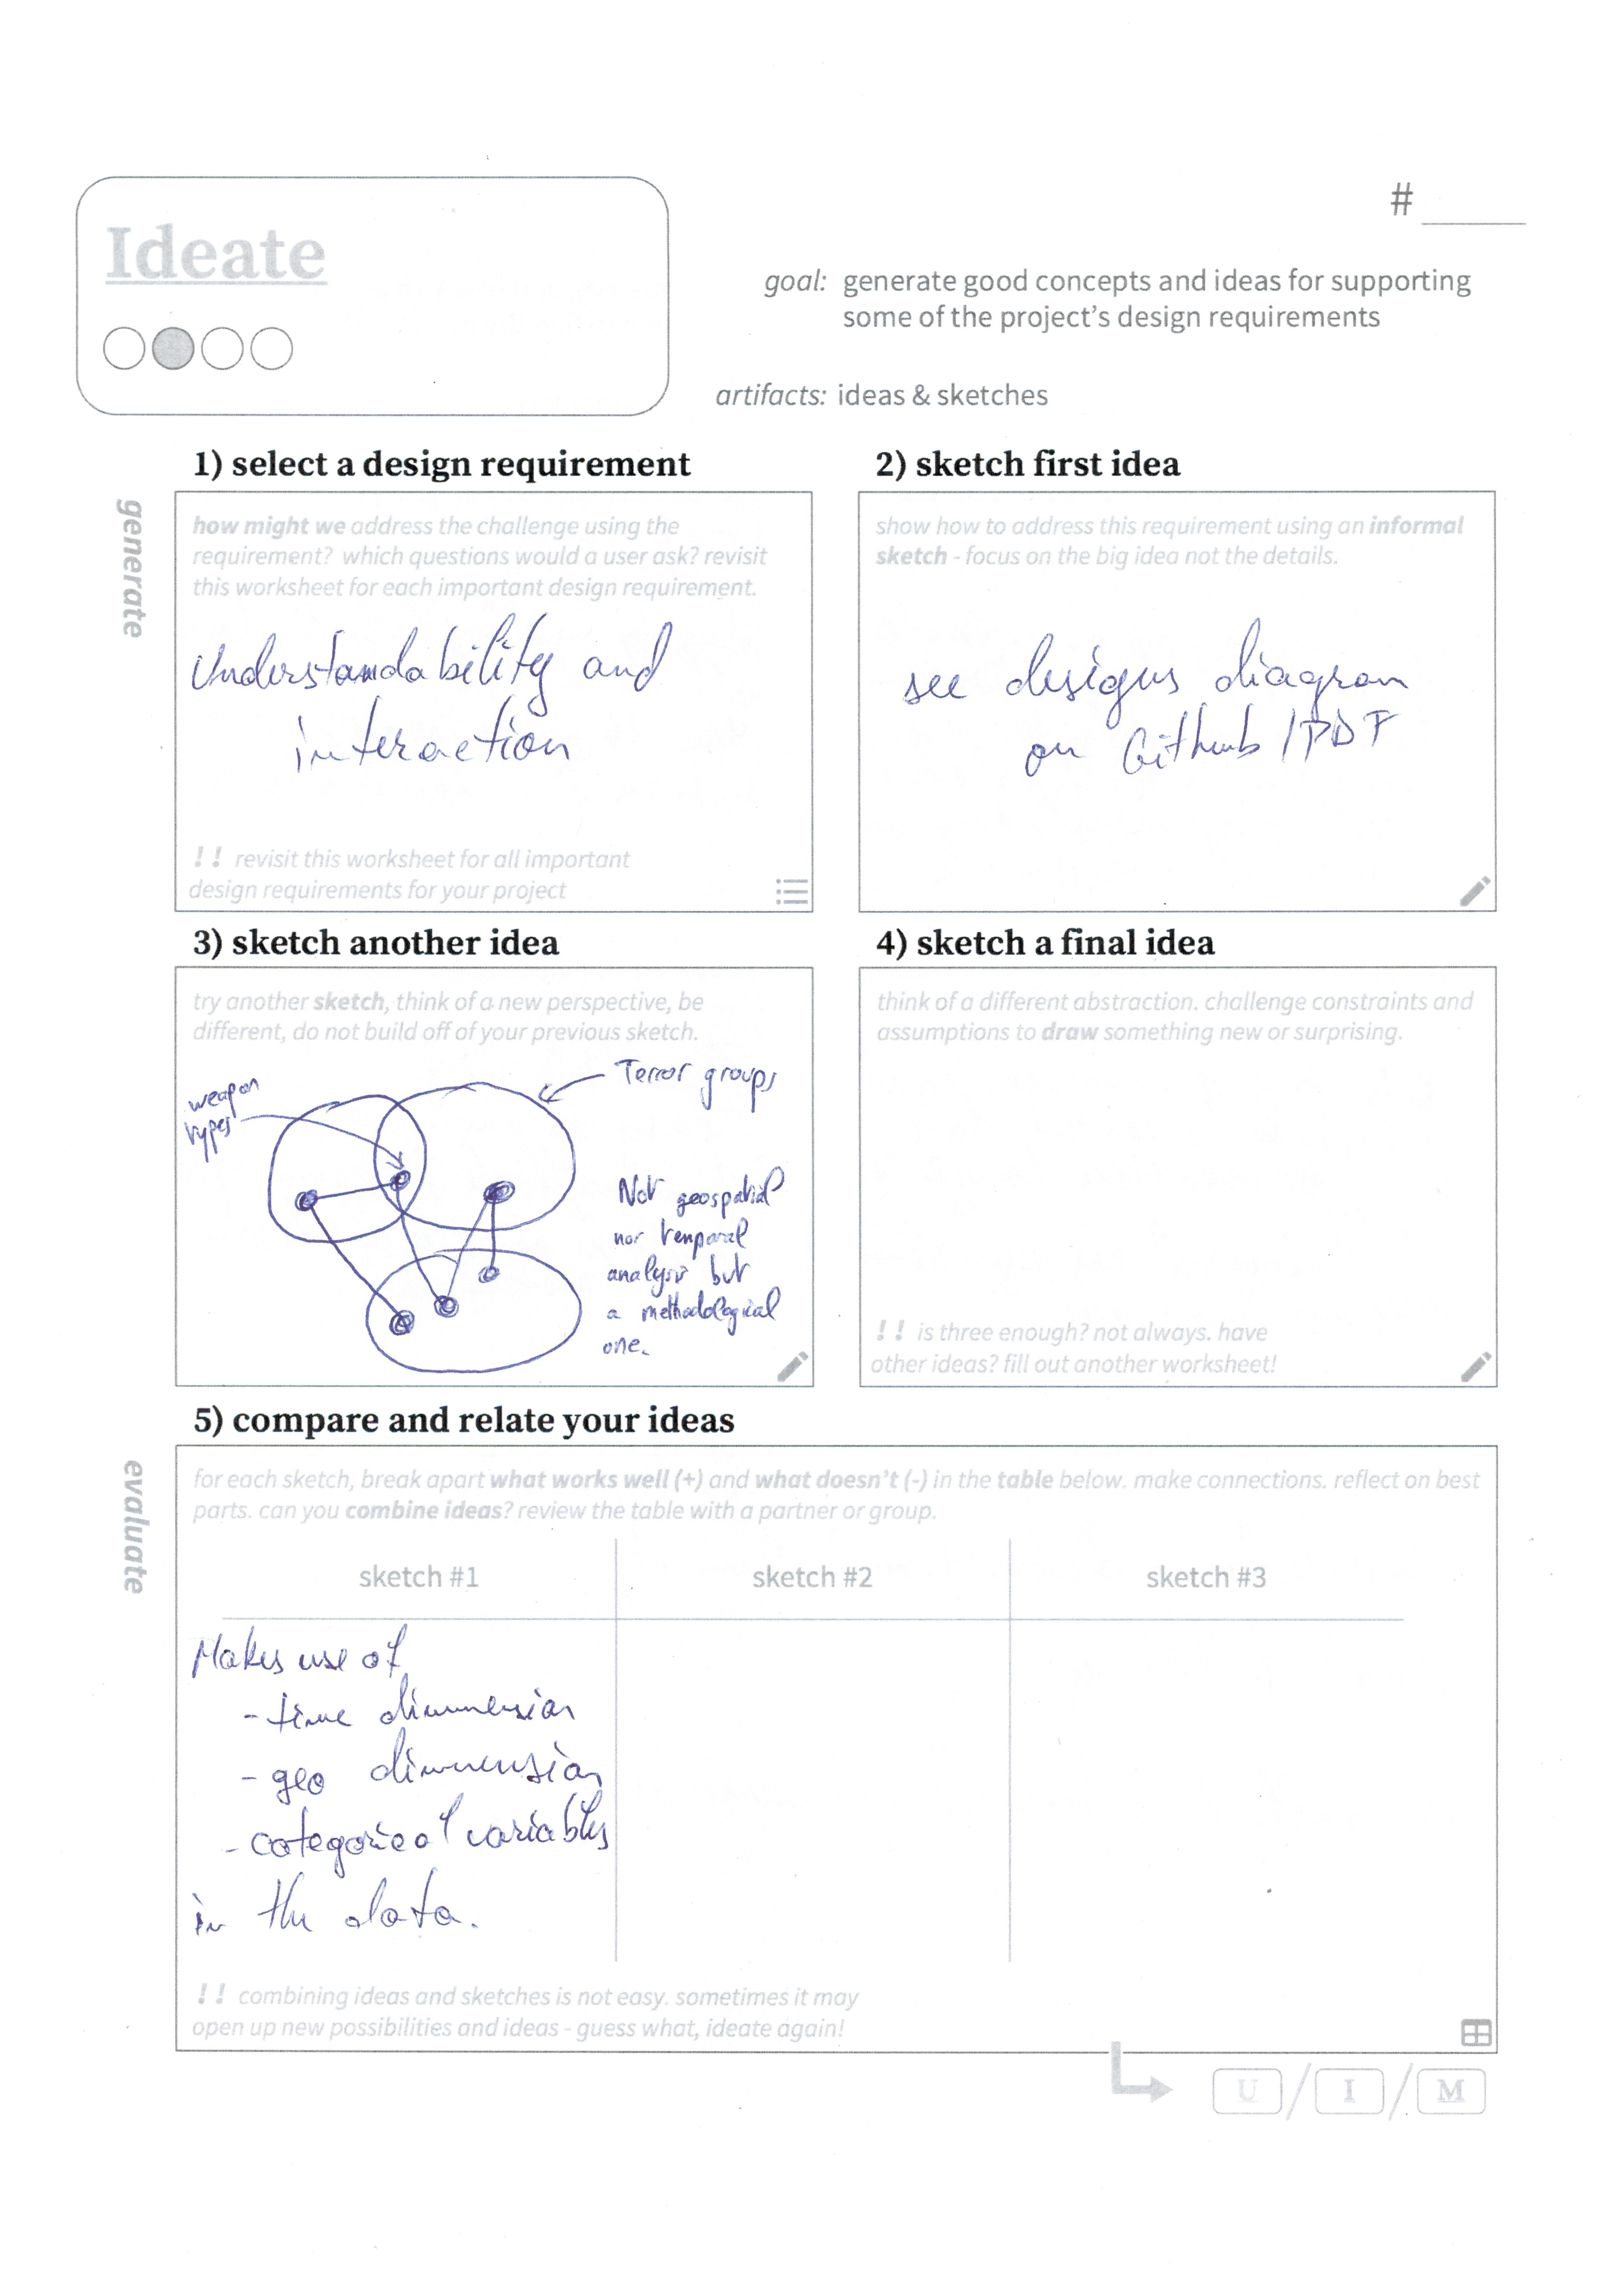 Ideate
#
goal: generate good concepts and ideas for supporting
some of the project's design requirements
artifacts: ideas & sketches
generate
1) select a design requirement
how might we address the challenge using the
requirement? which questions would a user ask? revisit
this worksheet for each important design requirement.
Understandability and
interaction
!! revisit this worksheet for all important
design requirements for your project
2) sketch first idea
show how to address this requirement using an informal
sketch - focus on the big idea not the details.
see designs diagram
on Github / PDF
3) sketch another idea
try another sketch, think of a new perspective, be
different, do not build off of your previous sketch.
Terror groups
weapon
types
Not geospatial
nor temporal
analysis but
a methodological
one.
4) sketch a final idea
think of a different abstraction. challenge constraints and
assumptions to draw something new or surprising.
!! is three enough? not always. have
other ideas? fill out another worksheet!
evaluate
5) compare and relate your ideas
for each sketch, break apart what works well (+) and what doesn't (-) in the table below. make connections. reflect on best
parts. can you combine ideas? review the table with a partner or group.
sketch #1 sketch #2 sketch #3
Makes use of
- time dimmension
- geo dimmension
- categorical variables
in the data.
!! combining ideas and sketches is not easy. sometimes it may
open up new possibilities and ideas - guess what, ideate again!
U / I / M